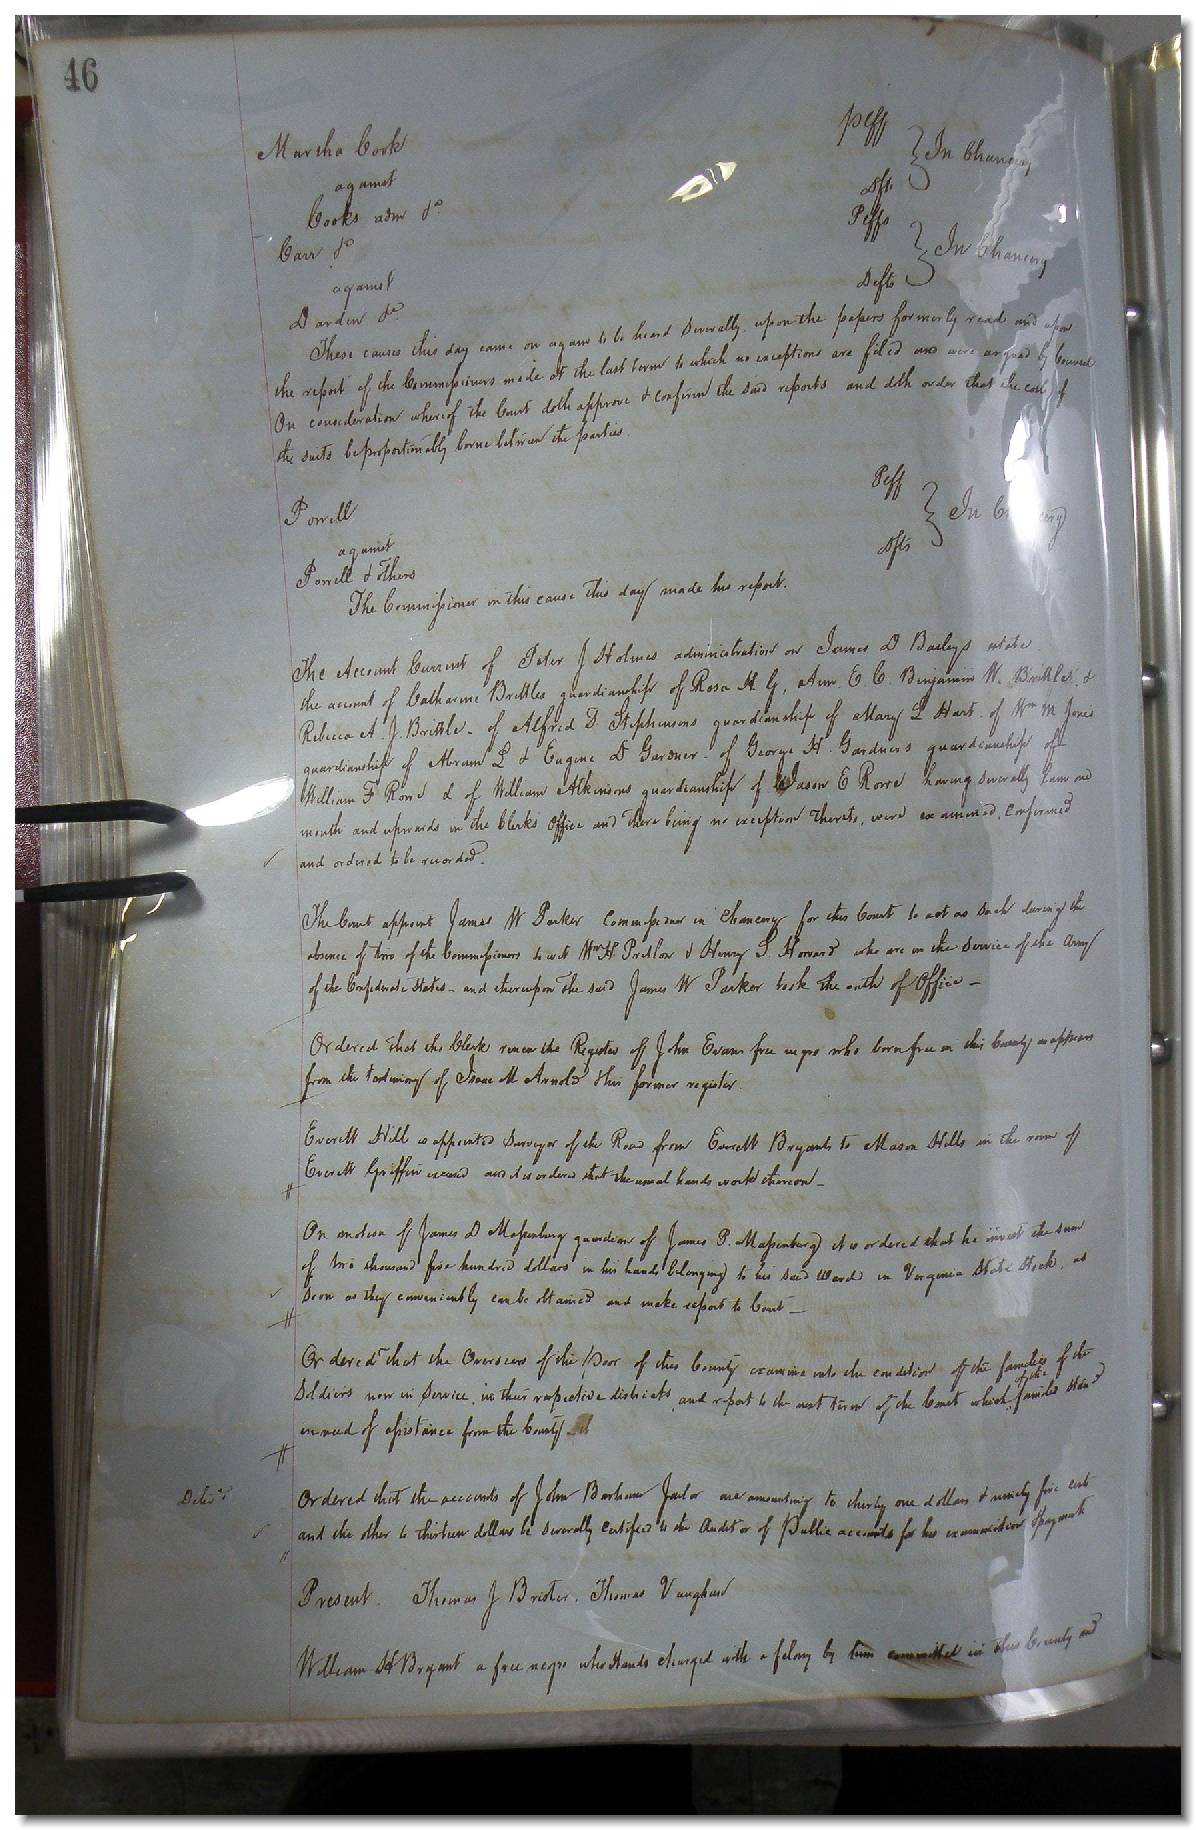 46
Marsha Cook Peff
against } In Chancery
Cooks adm &c Dfts
Carr &c Peffs
against } In Chancery
Darden &c Defts
These causes this day came on again to be heard severally, upon the papers formerly read and upon
the report of the Commissioners made at the last term to which no exceptions are filed and were argued by Counsel
On consideration whereof the Court doth approve & confirm the said reports and doth order that the cost of
the suits be proportionably borne between the parties.
Powell Peff
against } In Chancery
Powell & others Dfts
The Commissioner in this cause this day made his report.
The Account Current of Peter J Holmes administration on James D Baileys estate
the account of Catharine Brittles guardianship of Rosa A G, Ann E. C. Benjamin W. Brittle, &
Rebecca A. J. Brittle - of Alfred D. Stephensons guardianship of Mary L Hart. of Wm M Jones
guardianship of Abram L & Eugene D Gardner. of George H. Gardners guardianship of
William F Rowe & of William Atkinsons guardianship of Jason E Rowe having severally lain one
month and upwards in the Clerks Office and there being no exception thereto, were examined, confirmed
and ordered to be recorded.
The Court appoint James W Parker Commissioner in Chancery for this Court to act as such during the
absence of two of the Commissioners to wit Wm H Pretlow & Henry S Howard who are in the service of the Army
of the Confederate States - and thereupon the said James W Parker took the oath of Office -
Ordered that the Clerk renew the Register of John Evans free negro who born free in this County as appears
from the testimony of Isaac M Arnold & his former register.
Everett Hill is appointed Surveyor of the Road from Everett Bryants to Mason Hills in the room of
Everett Griffin and it is ordered that the usual hands work thereon -
On motion of James D Massenburg guardian of James P. Massenburg it is ordered that he invest the sum
of two thousand five hundred dollars in his hands belonging to his said Ward in Virginia State Stock, as
soon as they conveniently can be obtained and make report to Court -
Ordered that the Overseers of the Poor of this County examine into the condition of the families of the
Soldiers now in Service, in their respective districts, and report to the next term of the Court which of the families stand
in need of assistance from the County
Ordered that the accounts of John Barham Jailor one amounting to thirty one dollars & ninety five cents
and the other to thirteen dollars be severally certified to the Auditor of Public accounts for his examination & payment
Present. Thomas J Brister. Thomas Vaughan
William H Bryant a free negro who stands charged with a felony by him committed in this County and